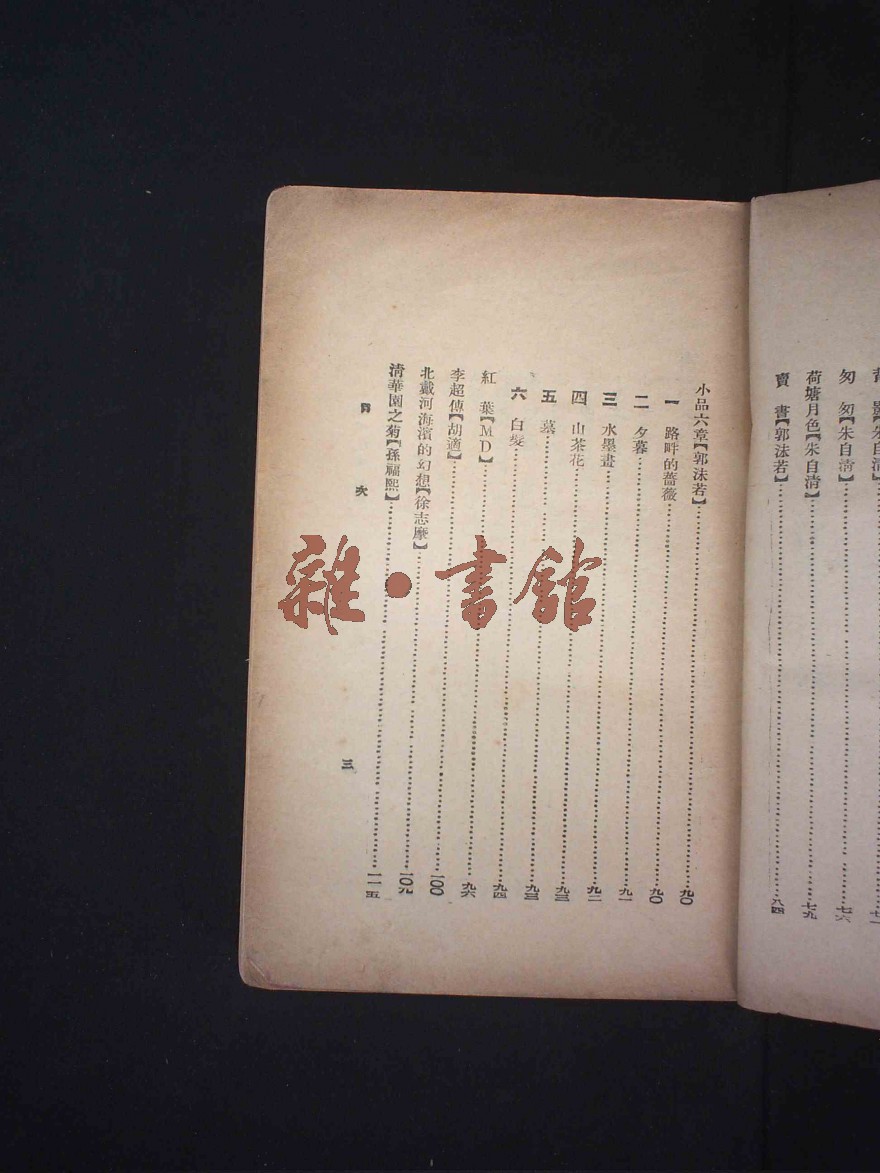 匆　匆【朱自清】……七六
荷塘月色【朱自清】……七九
賣　書【郭沫若】……八四
小品六章【郭沫若】……九〇
一　路畔的薔薇……九〇
二　夕暮……九一
三　水墨畫……九二
四　山茶花……九三
五　墓……九三
六　白髮……九四
紅　葉【MD】……九六
李超傳【胡適】……一〇〇
北戴河海濱的幻想【徐志摩】……一〇九
清華園之菊【孫福熙】……一一五
目　次
三
雜·書館